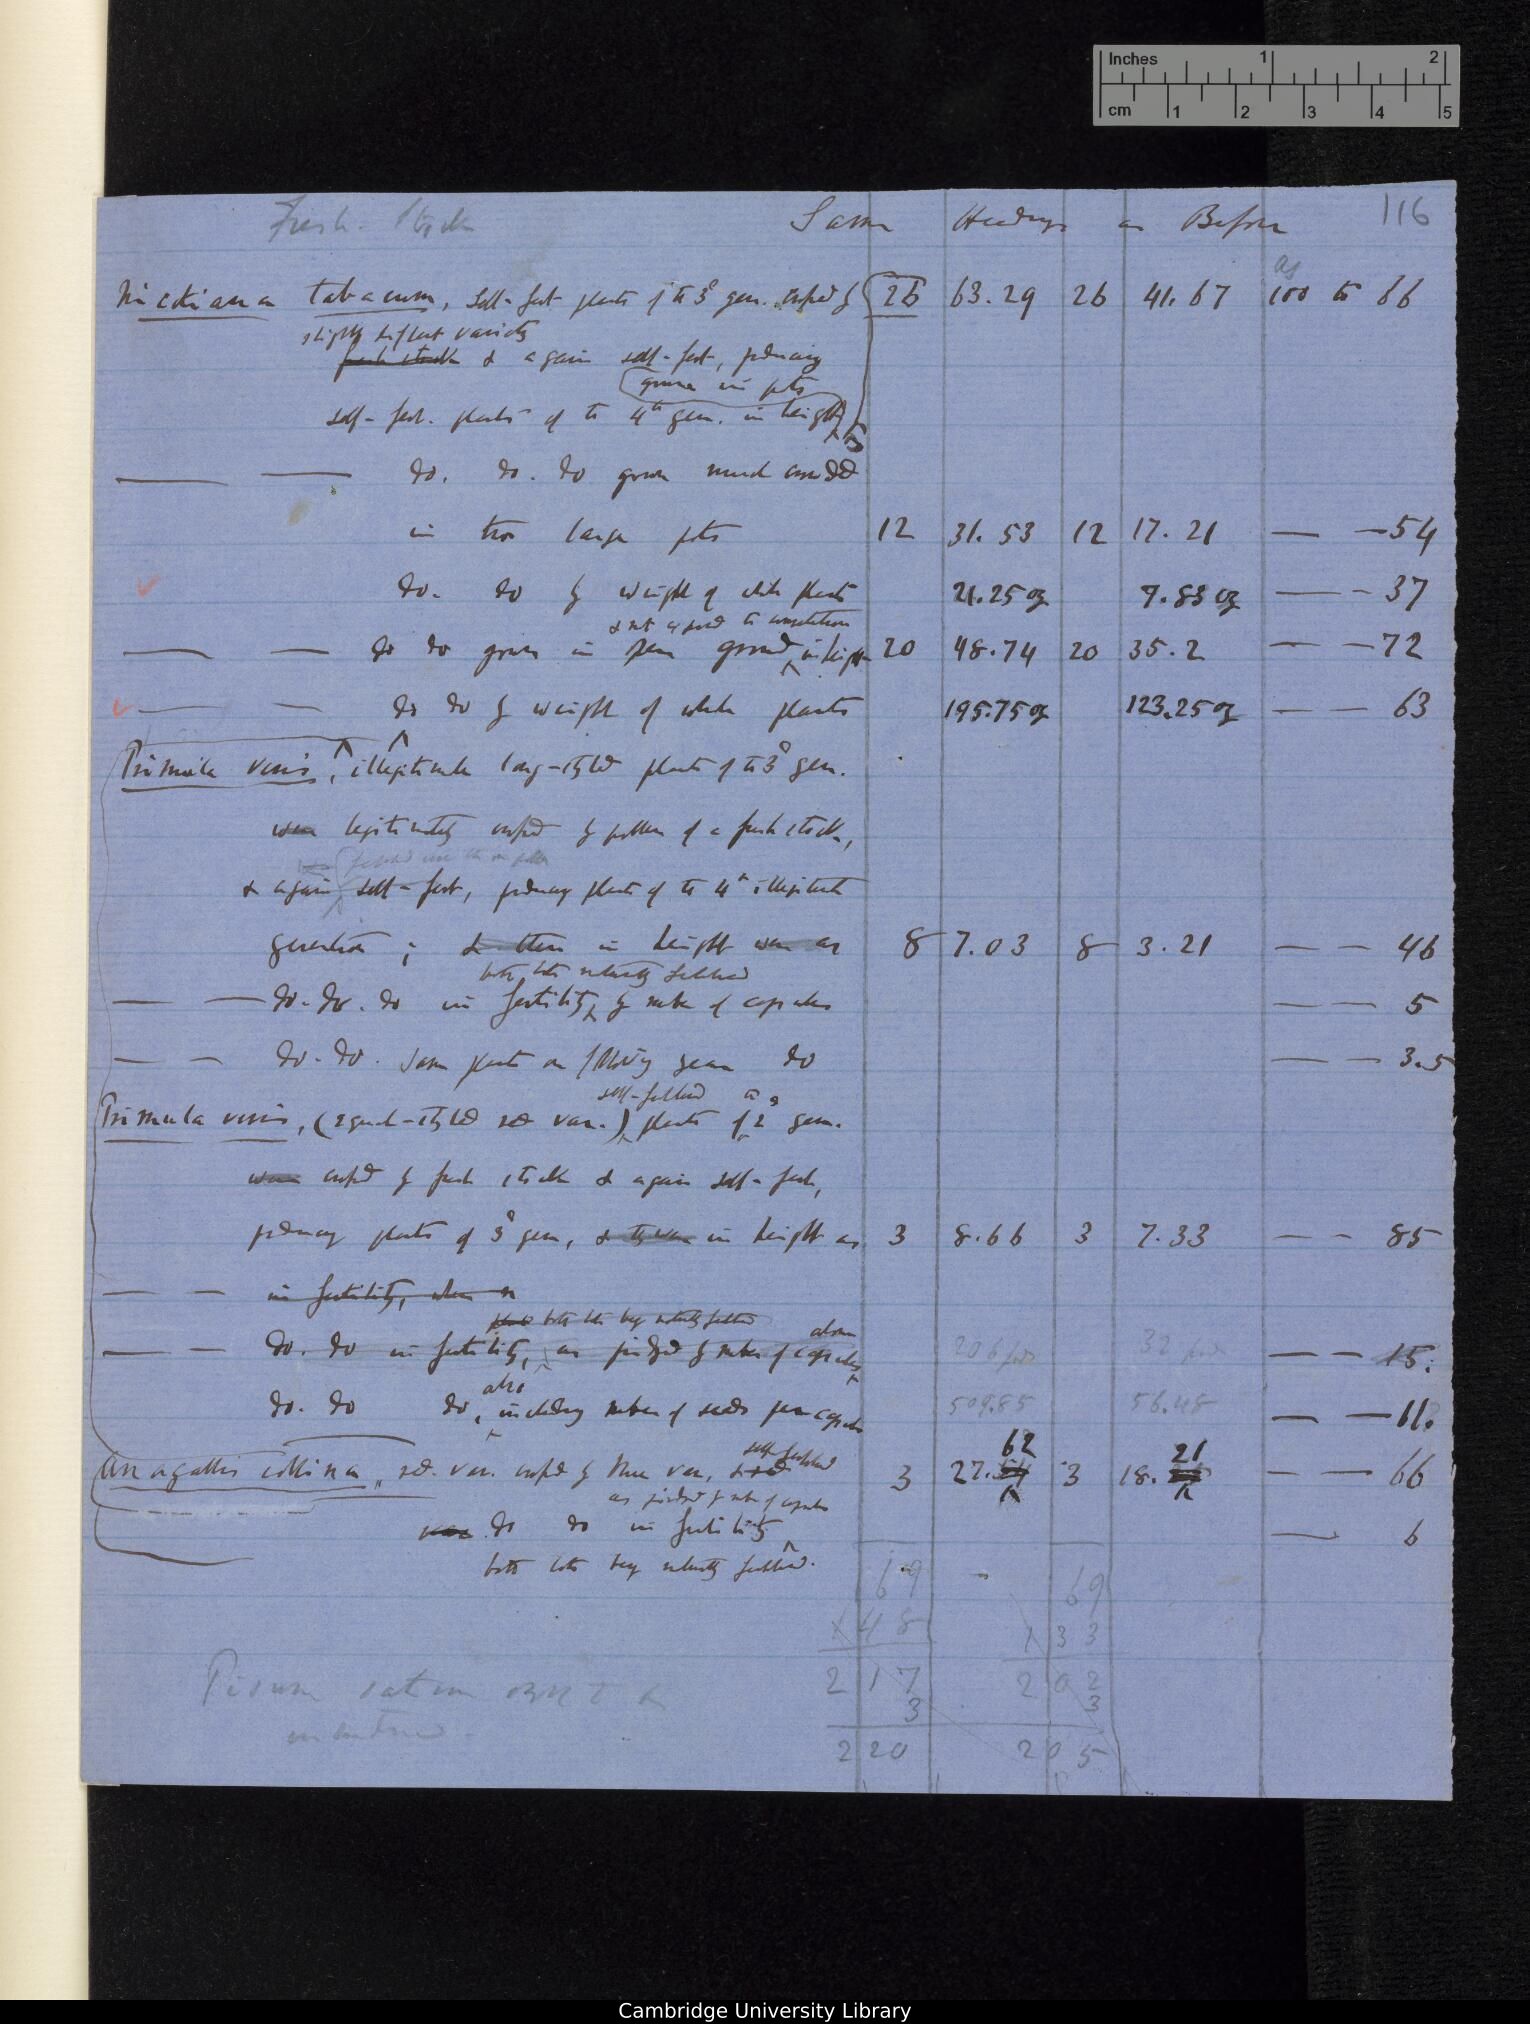 Inches 1 2
cm 1 2 3 4 5
Fresh. Stock Same Headings as Before 116
as
Nicotiana tabacum, self-fert plants of the 3d gen. crossed by 26 63.29 26 41.67 100 to 66
slightly different variety
fresh stock & again self-fert, producing
grown in pots
self-fert. plants of the 4th gen. in height
— — do. do. do grown much crowded
in two large pots 12 31.53 12 17.21 — — 54
do. do by weight of whole plants 21.25 oz 7.83 oz — — 37
& not exposed to competition
— — do do grown in open ground, in height 20 48.74 20 35.2 — — 72
— — do do by weight of whole plants 195.75 oz 123.25 oz — — 63
Primula veris, illegitimate long-styled plants of the 3d gen.
were legitimately crossed by pollen of a fresh stock,
& again self-fert, producing plants of the 4th illegitimate
generation; & these in height were as 8 7.03 8 3.21 — — 46
both lots naturally fertilised
— — do. do. do in fertility, by number of capsules — — 5
— — do. do. same plants on following year do — — 3.5
self-fertilised the
Primula veris, (equal-styled red var.) plants of 2d gen.
were crossed by fresh stock & again self-fert,
producing plants of 3d gen, & they were in height as 3 8.66 3 7.33 — — 85
— — in fertility, when
both lots being naturally fertilised
above
— — do. do in fertility, as judged by number of capsules 206 pods 32 pods — — 15.
also
do. do do, including number of seeds per capsule 509.85 56.48 — — 11.
62 21
self-fertilised
Anagallis collina, red. var. crossed by blue var, & red 3 27. 3 18. — — 66
as judged by number of capsules
do do in fertility — 6
both lots being naturally fertilised.
69 69
148 133
217 202
3 3
220 205
Pisum sativum